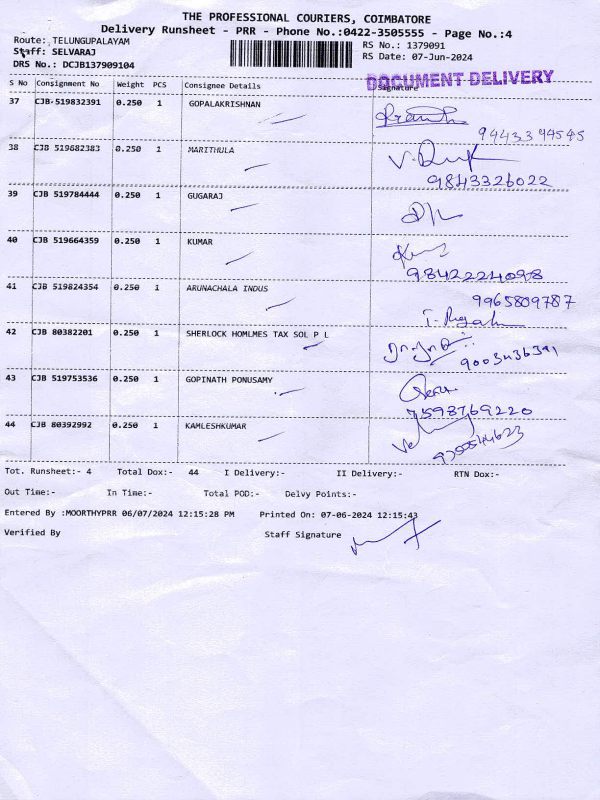 THE PROFESSIONAL COURIERS, COIMBATORE
Delivery Runsheet - PRR - Phone No.:0422-3505555 - Page No.:4
Route: TELUNGUPALAYAM
RS No.: 1379091
Staff: SELVARAJ
RS Date: 07-Jun-2024
DRS No.: DCJB137909104
DOCUMENT DELIVERY
S No Consignment No Weight PCS Consignee Details Signature
37 CJB 519832391 0.250 1 GOPALAKRISHNAN
9443394545
38 CJB 519682383 0.250 1 MARITHULA
9843326022
39 CJB 519784444 0.250 1 GUGARAJ
40 CJB 519664359 0.250 1 KUMAR
9842224098
41 CJB 519824354 0.250 1 ARUNACHALA INDUS
9965809787
42 CJB 80382201 0.250 1 SHERLOCK HOMLMES TAX SOL P L
43 CJB 519753536 0.250 1 GOPINATH PONUSAMY
7598769220
44 CJB 80392992 0.250 1 KAMLESHKUMAR
Tot. Runsheet:- 4 Total Dox:- 44 I Delivery:- II Delivery:- RTN Dox:-
Out Time:- In Time:- Total POD:- Delvy Points:-
Entered By :MOORTHYPRR 06/07/2024 12:15:28 PM Printed On: 07-06-2024 12:15:43
Verified By Staff Signature